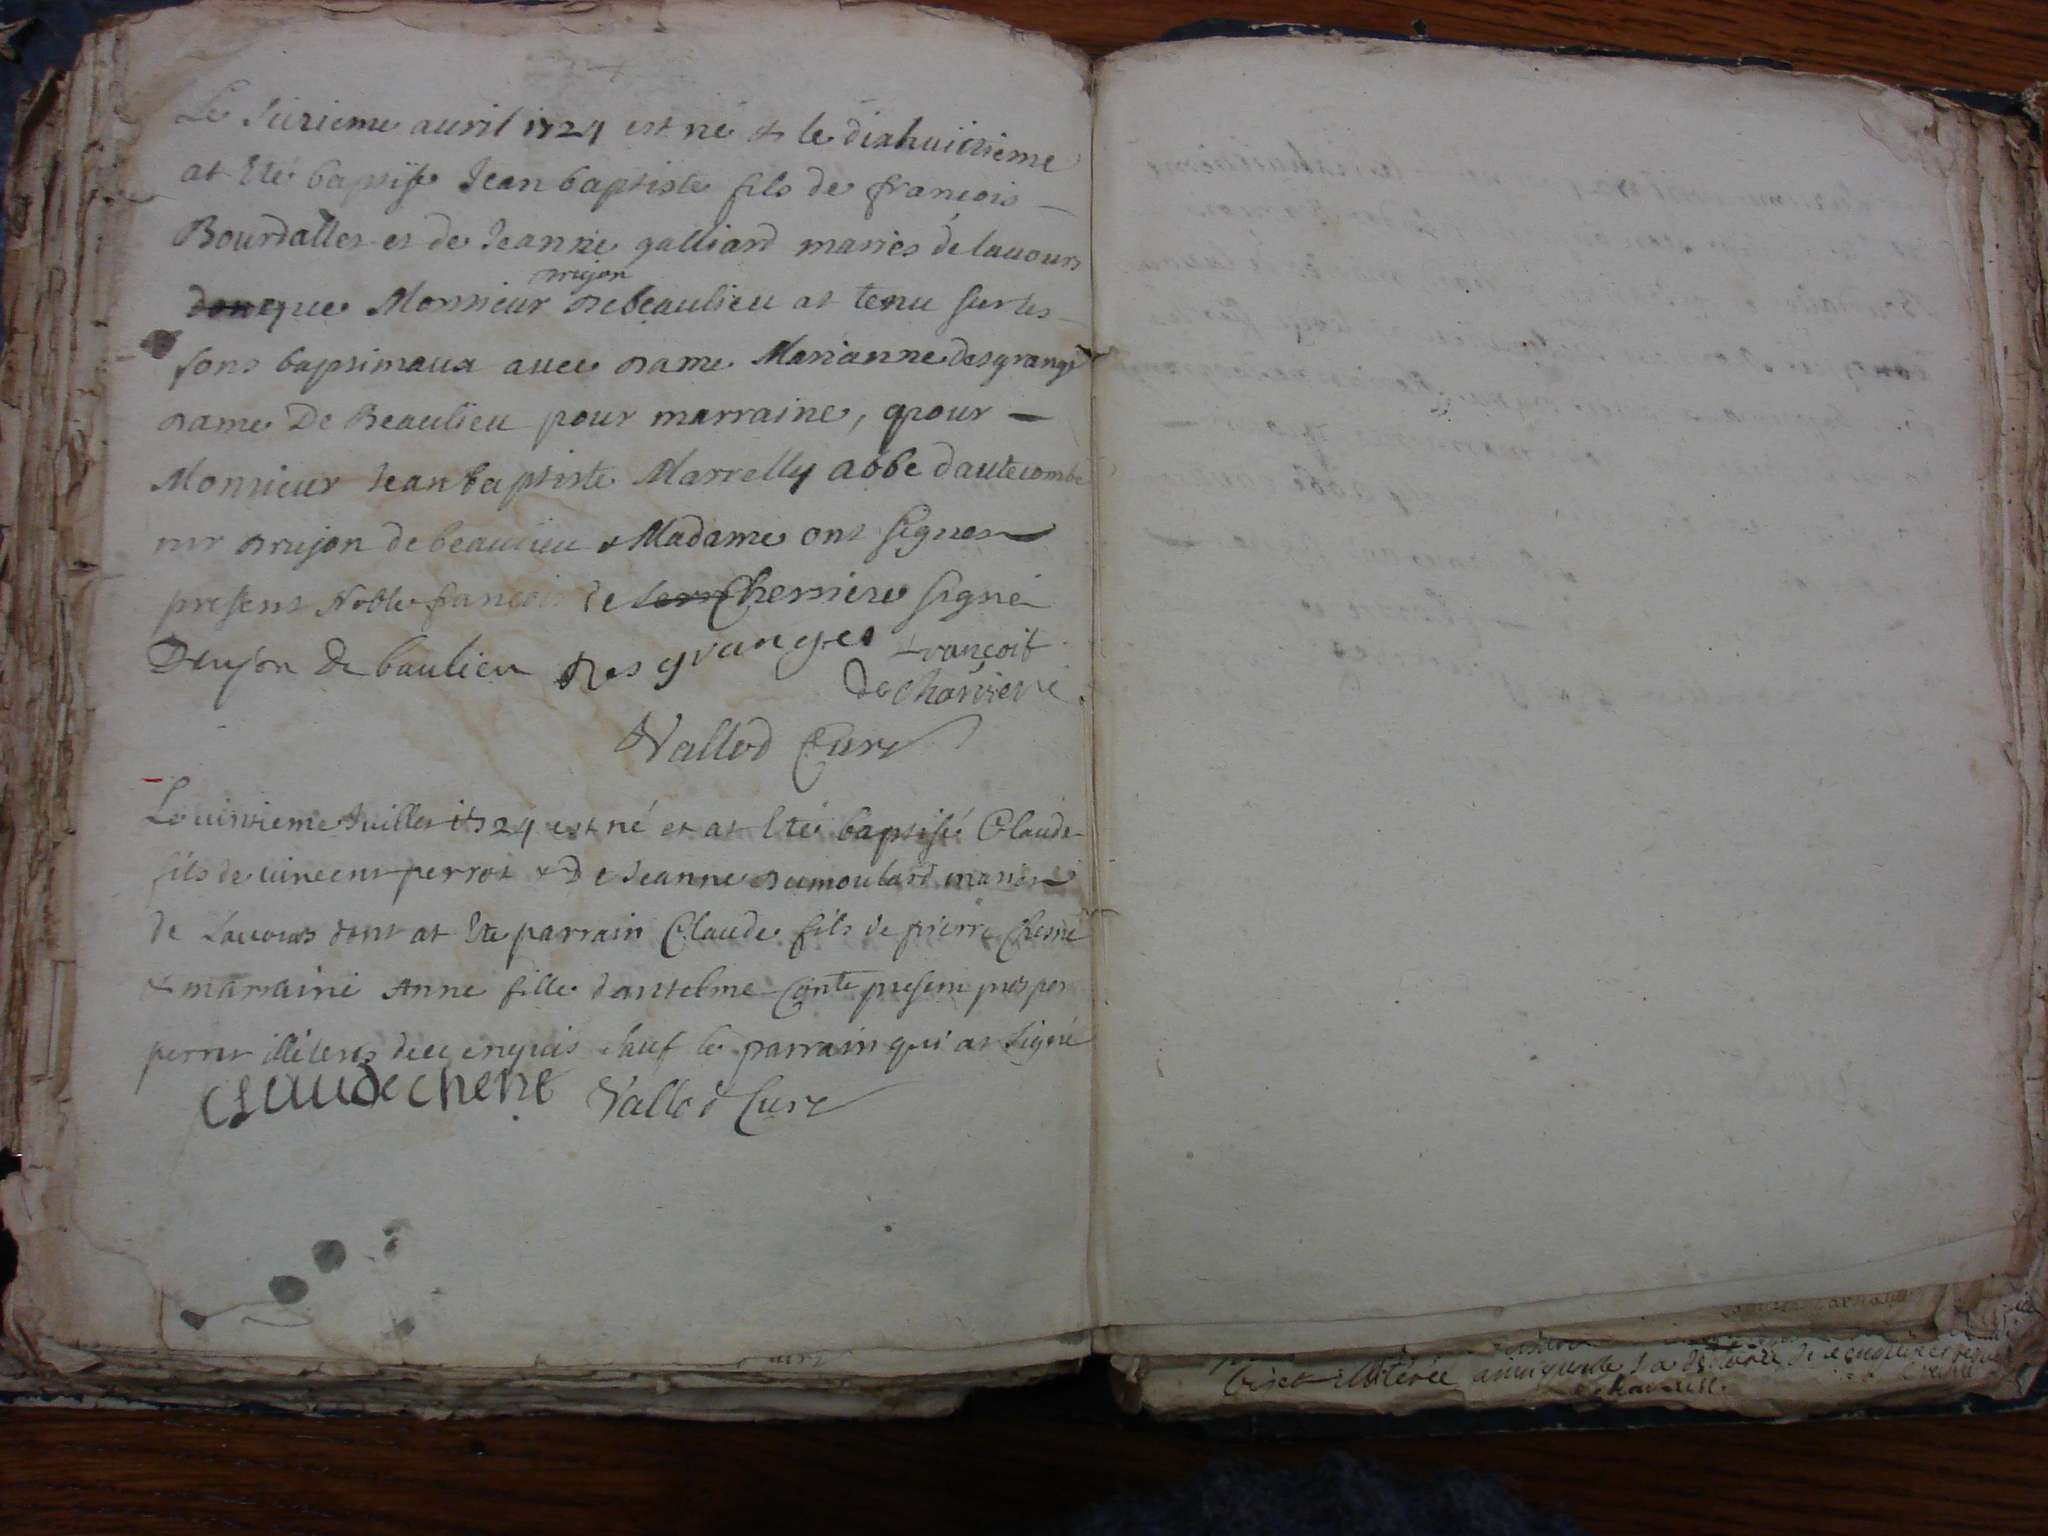 Le seizieme avril 1724 est né & le dixhuictieme
at eté baptisé Jean baptiste fils de françois
Bourdalles et de Jeanne galliard mariés de lavours
drujon
que Monsieur de beaulieu at tenu sur les
fons baptimaux avec dame Marianne desgranges
dame De Beaulieu pour marraine, & pour
Monsieur Jean baptiste Marrelly abbe dautecombe
mr drujon de beaulieu & Madame ont signes
present Noble françois de Cherriere signé
Drujon De baulieu Desgranges françois
de charriere
Vallod Curé
Le Juillet 1724 est né et at eté baptisé Claude
fils de vincent perrot & De Jeanne dumoulard mariés
de Lavours dont at ete parrain Claude fils de pierre Chesne
& marraine Anne fille dantelme Conte present prosper
perret illiteres de ce enquis sauf le parrain qui at signé
CLAUDE CHENE Vallod Curé
illiterée ainsi que